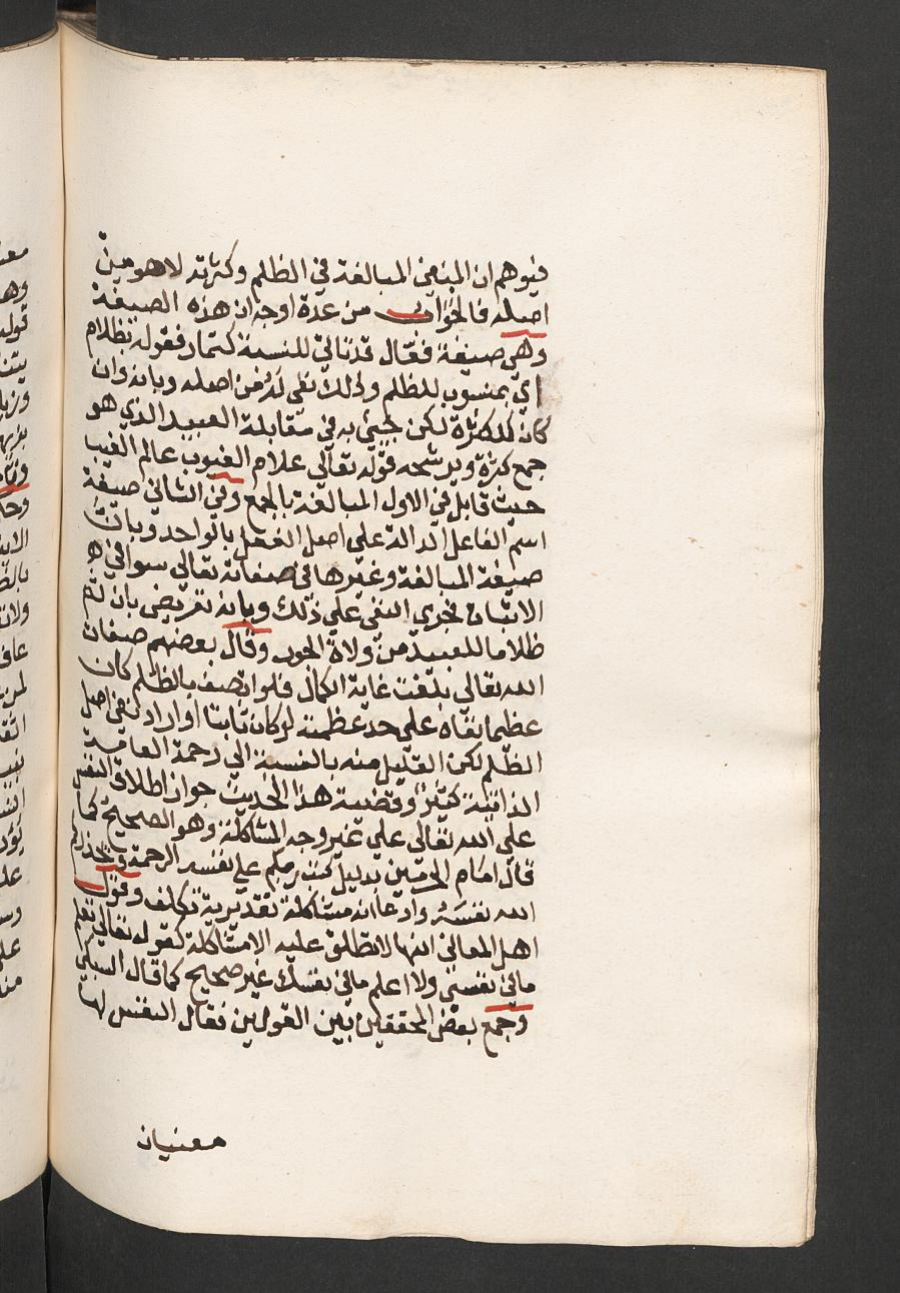 فيوهم ان المنفي المبالغة في الظلم وكثرته لا هو من
اصله فالجواب من عدة اوجه ان هذه الصيغة
وهي صيغة فعال قد تاتي للنسبة كتمار فقوله بظلام
اي بمنسوب للظلم وذلك نفي له من اصله وبانه وان
كان للكثرة لكن جيئ به في مقابلة العبيد الذي هو
جمع كثرة ويرشحه قوله تعالي علام الغيوب عالم الغيب
حيث قابل في الاول المبالغة بالجمع وفي الثاني صيغة
اسم الفاعل الدالة علي اصل الفعل بالواحد وبان
صيغة المبالغة وغيرها في صفاته تعالي سوا في
الاثبات فجري النفي علي ذلك وبانه تعريض بان ثم
ظلاما للعبيد من ولاة الجور وقال بعضهم صفات
الله تعالي بلغت غاية الكمال فلو اتصف بالظلم كان
عظيما نفاه علي حد عظمته لو كان ثابتا او اراد نفي اصل
الظلم لكن القليل منه بالنسبة الي رحمة العامة
الذاتية كثير وقضية هذا الحديث جواز اطلاق النفس
علي الله تعالي علي غير وجه المشاكلة وهو الصحيح كما
قال امام الحرمين بدليل كتب ربكم علي نفسه الرحمة ويحذركم
الله نفسه وادعا انه مشاكلة تقديرية تكلف وقول
اهل المعاني انها لا تطلق عليه الا مشاكلة كقوله تعالي تعلم
ما في نفسي ولا اعلم ما في نفسك غير صحيح كما قال السبكي
وجمع بعض المحققين بين القولين فقال النفس لها
معنيان